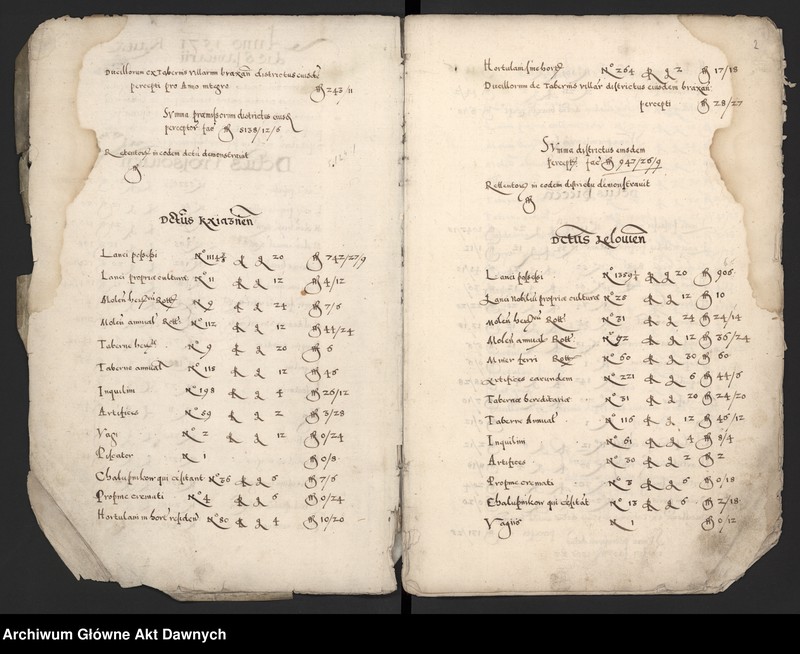 Ducillorum ex Tabernis villarum braxan districtus eiusdem
percepti pro Anno integro 243/11
Summa premissorum districtus eiusdem
perceptorum fac 5138/12/6
Retentores in eodem dctu demonstravit
Dctus Kxiaznen
Lanei possessi N° 20 742/27/9
Lanei propriae culturae N° 11 12 4/12
Molen Rott N° 9 24 7/6
Molen annual Rott N° 112 12 44/24
Taberne N° 9 20 6
Taberne annual N° 118 12 46
Inquilini N° 198 4 26/12
Artifices N° 59 2 3/28
Vagi N° 2 12 0/24
Piscator N 1 0/8
Chalupnikow qui censitant N° 36 6 7/6
Propinae cremati N° 4 6 0/24
Hortulani in hortis residen N° 80 4 10/20
2
Hortulani sine hortis N° 264 2 17/18
Ducillorum de Tabernis villar districtus eiusdem braxan
percepti 28/27
Summa districtus eiusdem
percept fac 947/26/9
Retentores in eodem districtu demonstravit
Dctus Lelovien
Lanei possessi N° 1359½ 20 906
Lanei nobilen propriae culturae N° 25 12 10
Molen Rott N° 31 24 24/14
Molen annual Rott N° 92 12 36/24
Miner ferri Rott N° 60 30 60
Artifices earundem N° 221 6 44/6
Tabernae hereditariae N° 31 20 24/20
Taberne Annual N° 116 12 46/12
Inquilini N° 61 4 8/4
Artifices N° 30 2 2
Propinae cremati N° 3 6 0/18
Chalupnikow qui censitant N° 13 6 2/18
Vagus N 1 0/12
Archiwum Główne Akt Dawnych